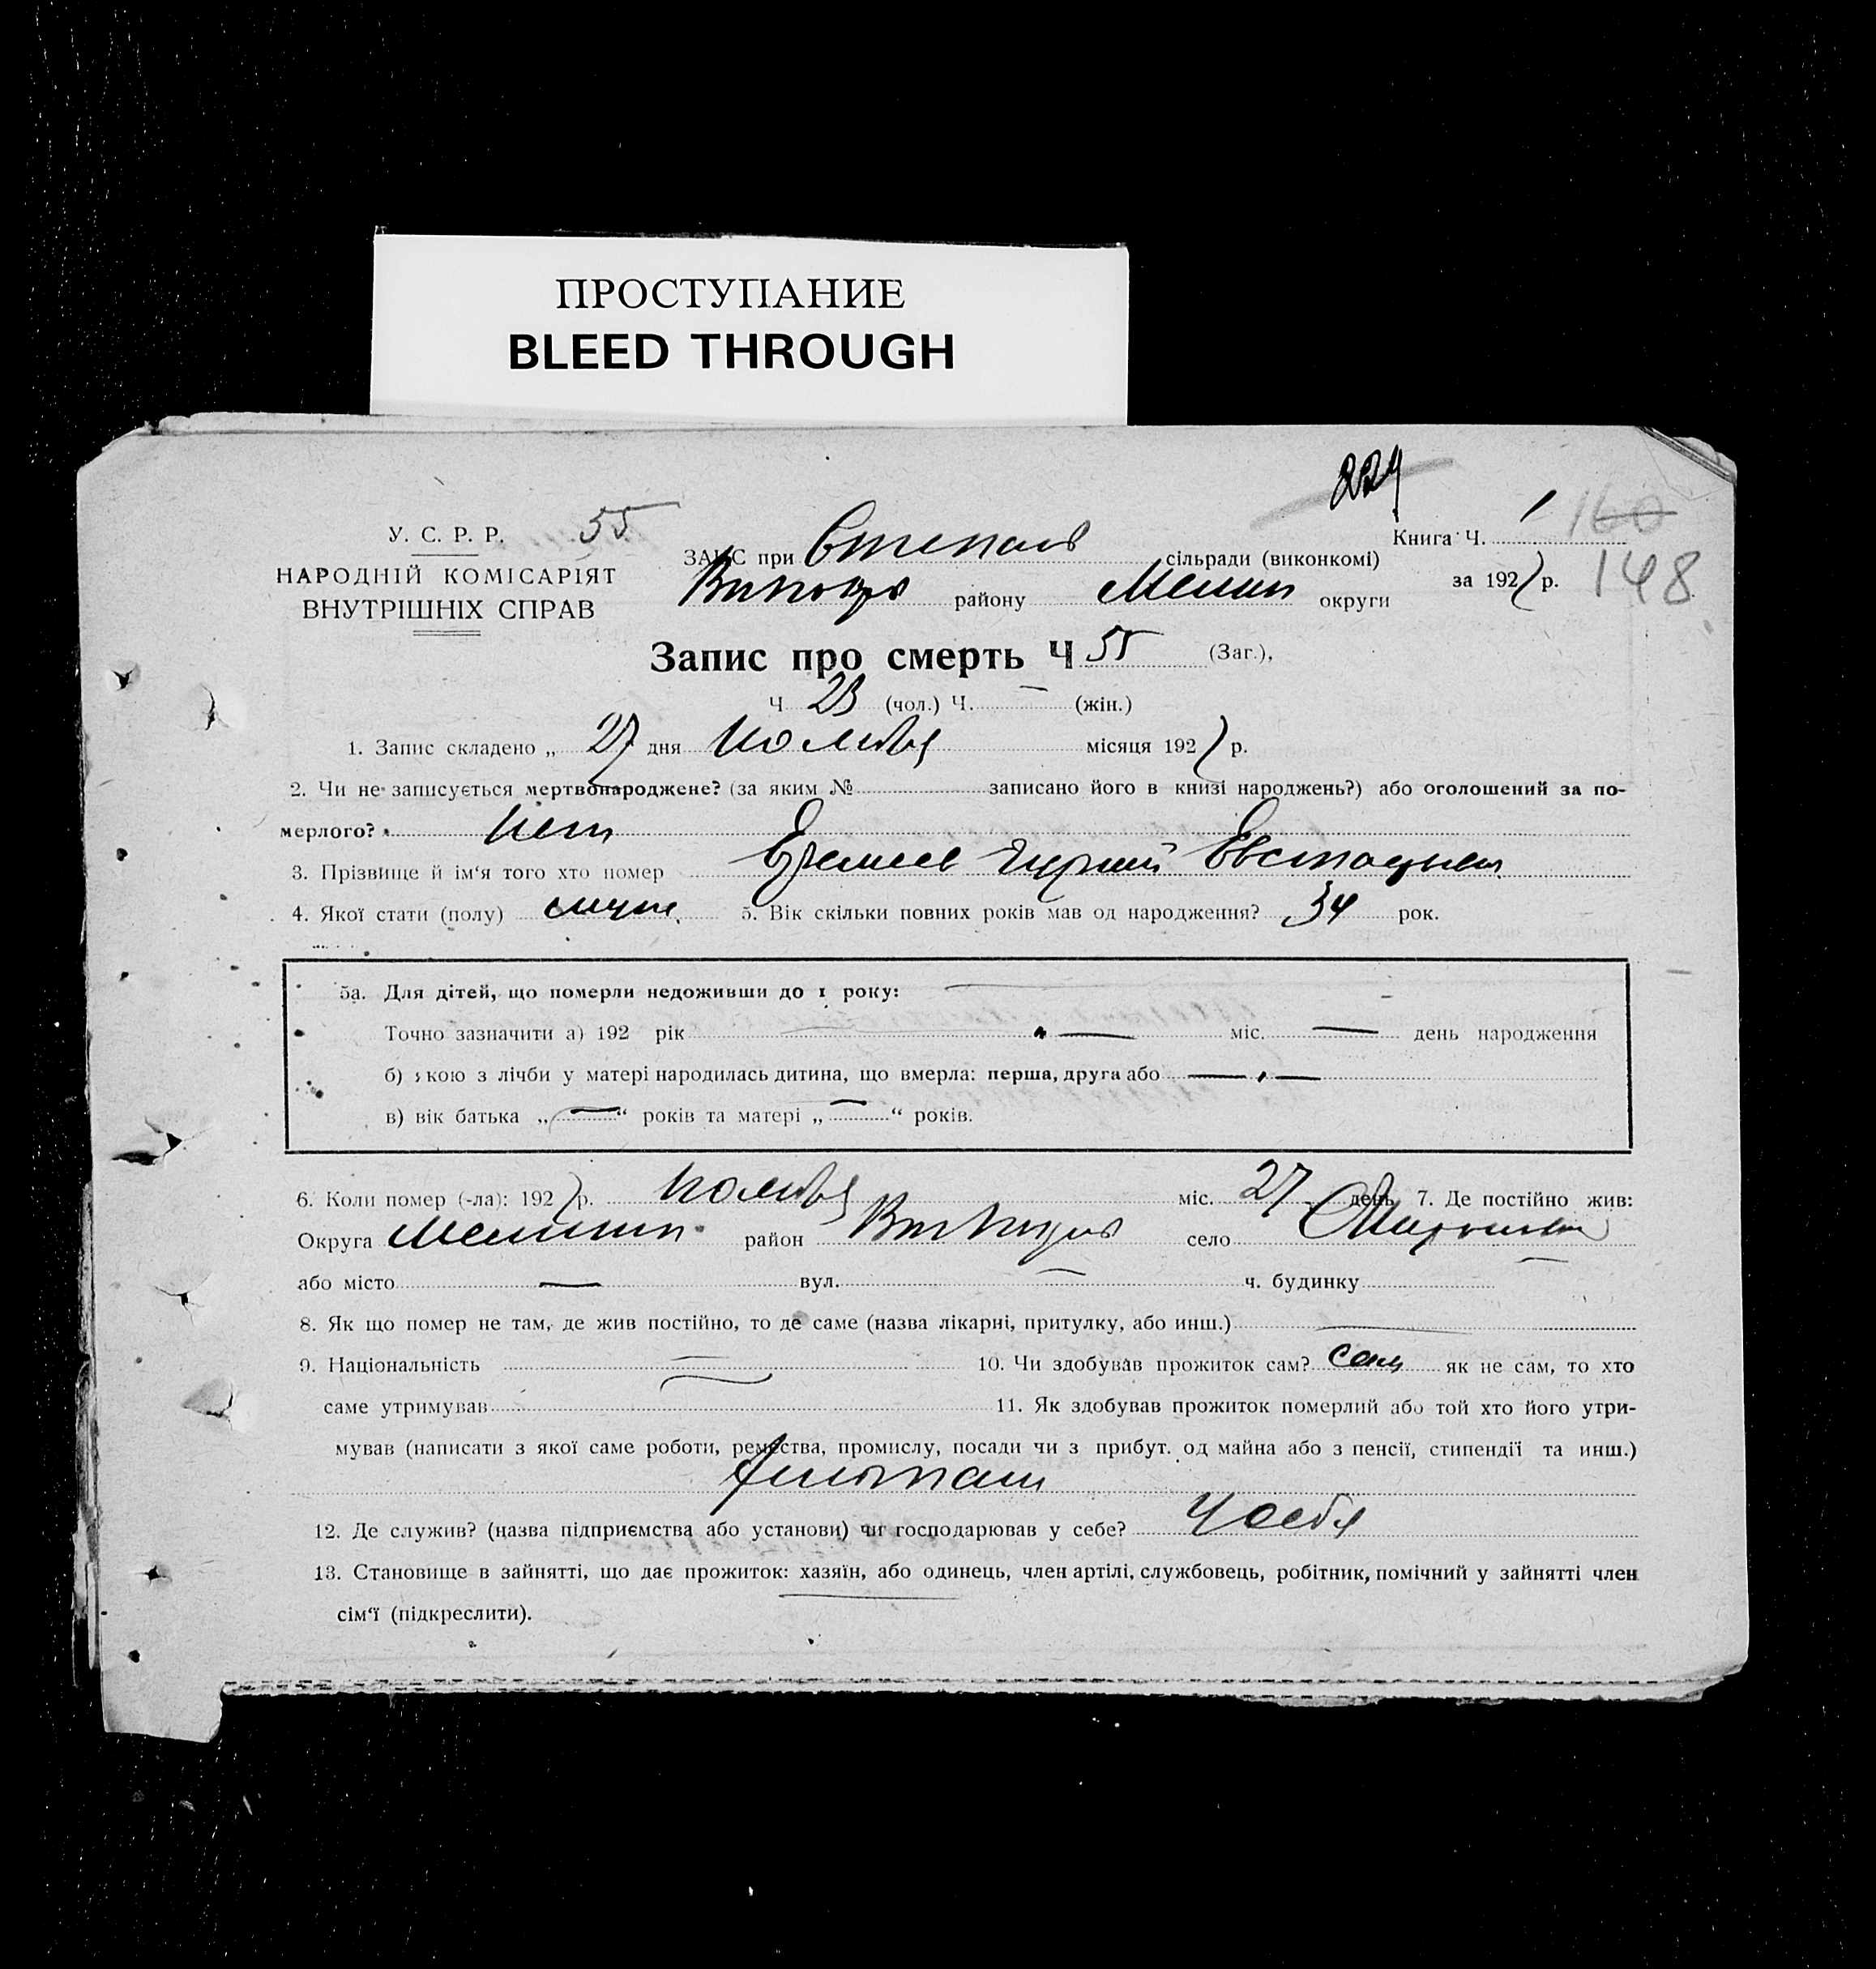 ПРОСТУПАНИЕ
BLEED THROUGH
229
У. С. Р. Р. 55
НАРОДНІЙ КОМІСАРІЯТ
ВНУТРІШНІХ СПРАВ
ЗАГС при сільради (виконкомі)
району округи
Книга Ч. 1 160
за 1927 р. 148
Запис про смерть Ч 55 (Заг.),
Ч 23 (чол.) Ч. — (жін.)
1. Запис складено „ 27 дня ноября місяця 1927 р.
2. Чи не записується мертвонароджене? (за яким № записано його в книзі народжень?) або оголошений за по-
мерлого? нет
3. Прізвище й ім'я того хто помер
4. Якої стати (полу) 5. Вік скільки повних років мав од народження? 34 рок.
5а. Для дітей, що померли недоживши до 1 року: —
Точно зазначити а) 192 рік — міс. — день народження
б) якою з лічби у матері народилась дитина, що вмерла: перша, друга або —
в) вік батька „ — “ років та матері „ — “ років.
6. Коли помер (-ла): 1927 р. ноября міс. 27 день 7. Де постійно жив:
Округа район село
або місто — вул. — ч. будинку —
8. Як що помер не там, де жив постійно, то де саме (назва лікарні, притулку, або инш.) —
9. Національність — 10. Чи здобував прожиток сам? сам як не сам, то хто
саме утримував 11. Як здобував прожиток померлий або той хто його утри-
мував (написати з якої саме роботи, ремества, промислу, посади чи з прибут. од майна або з пенсії, стипендії та инш.)
12. Де служив? (назва підприємства або установи) чи господарював у себе? у себя
13. Становище в зайнятті, що дає прожиток: хазяїн, або одинець, член артілі, службовець, робітник, помічний у зайнятті член
сім'ї (підкреслити).